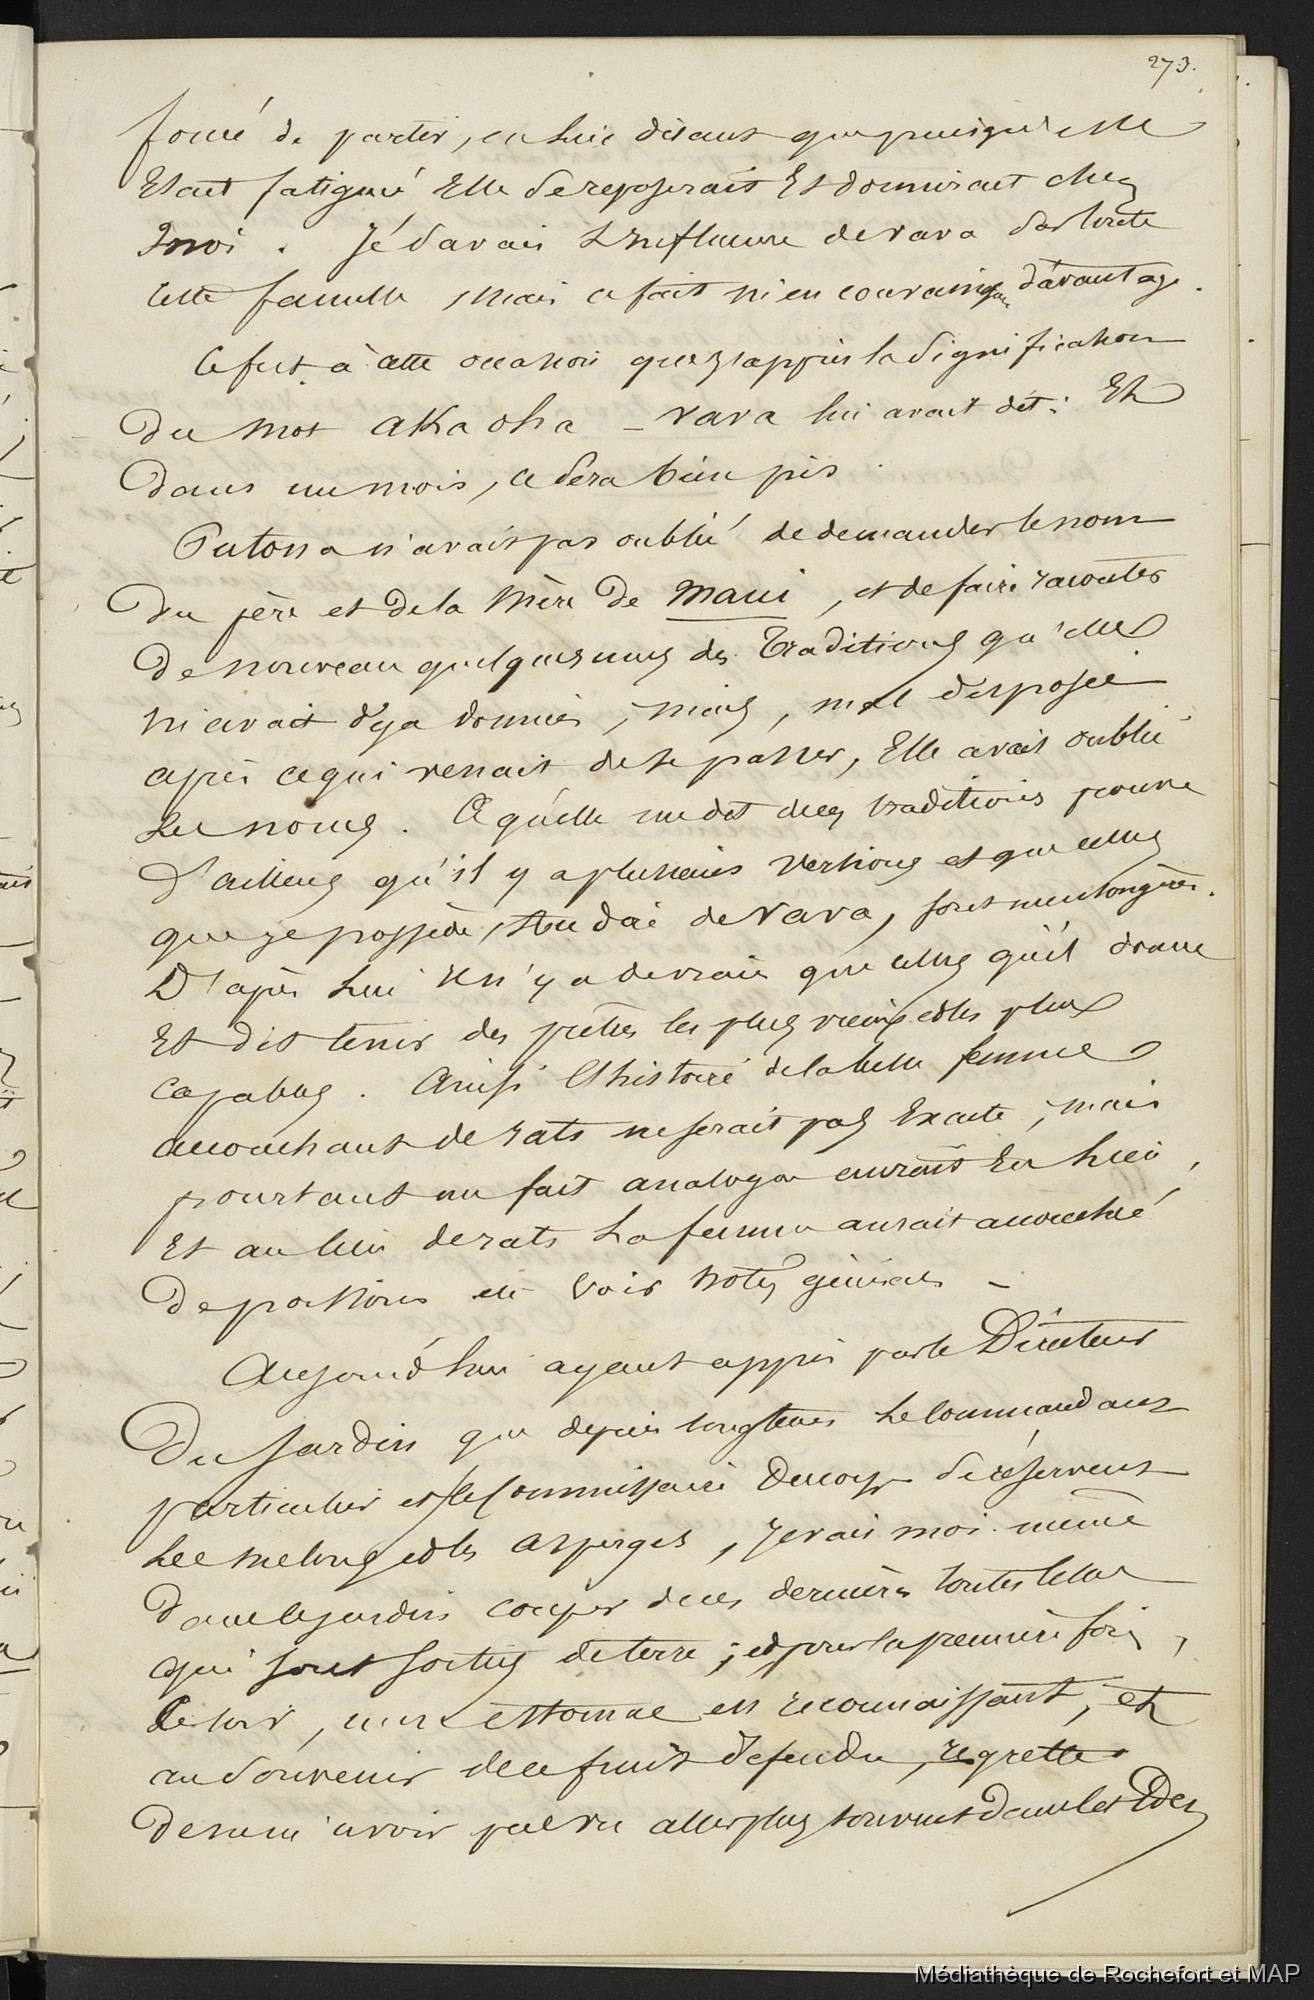 273.
forcé de partir, en lui disant que puisqu'elle
Etait fatigué Elle se reposerait Et dormirait chez
moi. Je savais L'influence de vava sur toute
cette famille, mais ce fait m'en convainquu d'avantage.
Ce fut à cette occasion que j'appris la signification
du mot akaoha - vava lui avait dit: Eh
dans un mois, ce sera bien pis
Patona n'avait pas oublié de demander le nom
du père et de la Mère de Maui, et de faire raconter
de nouveau quelques unes des Traditions qu'elle
m'avait dejà données, mais, mal disposée
après ce qui venait de se passer, Elle avait oublié
Les noms. Ce qu'elle me dit des traditions prouve
d'ailleurs qu'il y a plusieurs Versions et que celles
que je possède, au dire de vava, sont mensongères.
D'après Lui Il n'y a de vraies que celles qu'il donne
Et dit tenir des prêtres les plus vieux et les plus
capables. Ainsi L'histoire de la belle femme
accouchant de rats ne serait pas Exacte, mais
pourtant un fait analogue aurait Eu Lieu,
Et au lieu de rats La femme aurait accouché
de poissons voir Notes générales -
Aujourd'hui ayant appris par le Directeur
Du Jardin que depuis longtems Le Commandant
particulier et Le Commissaire se réservent
Les melons et les asperges, je vais moi-même
dans le jardin couper de ces dernières toutes celles
qui sont sorties de terre; et pour la première fois,
ce soir, mon estomac est reconnaissant, et
au souvenir de ce fruit défendu, regrette
de ne m'avoir pas vu aller plus souvent dans cet Eden
Médiathèque de Rochefort et MAP